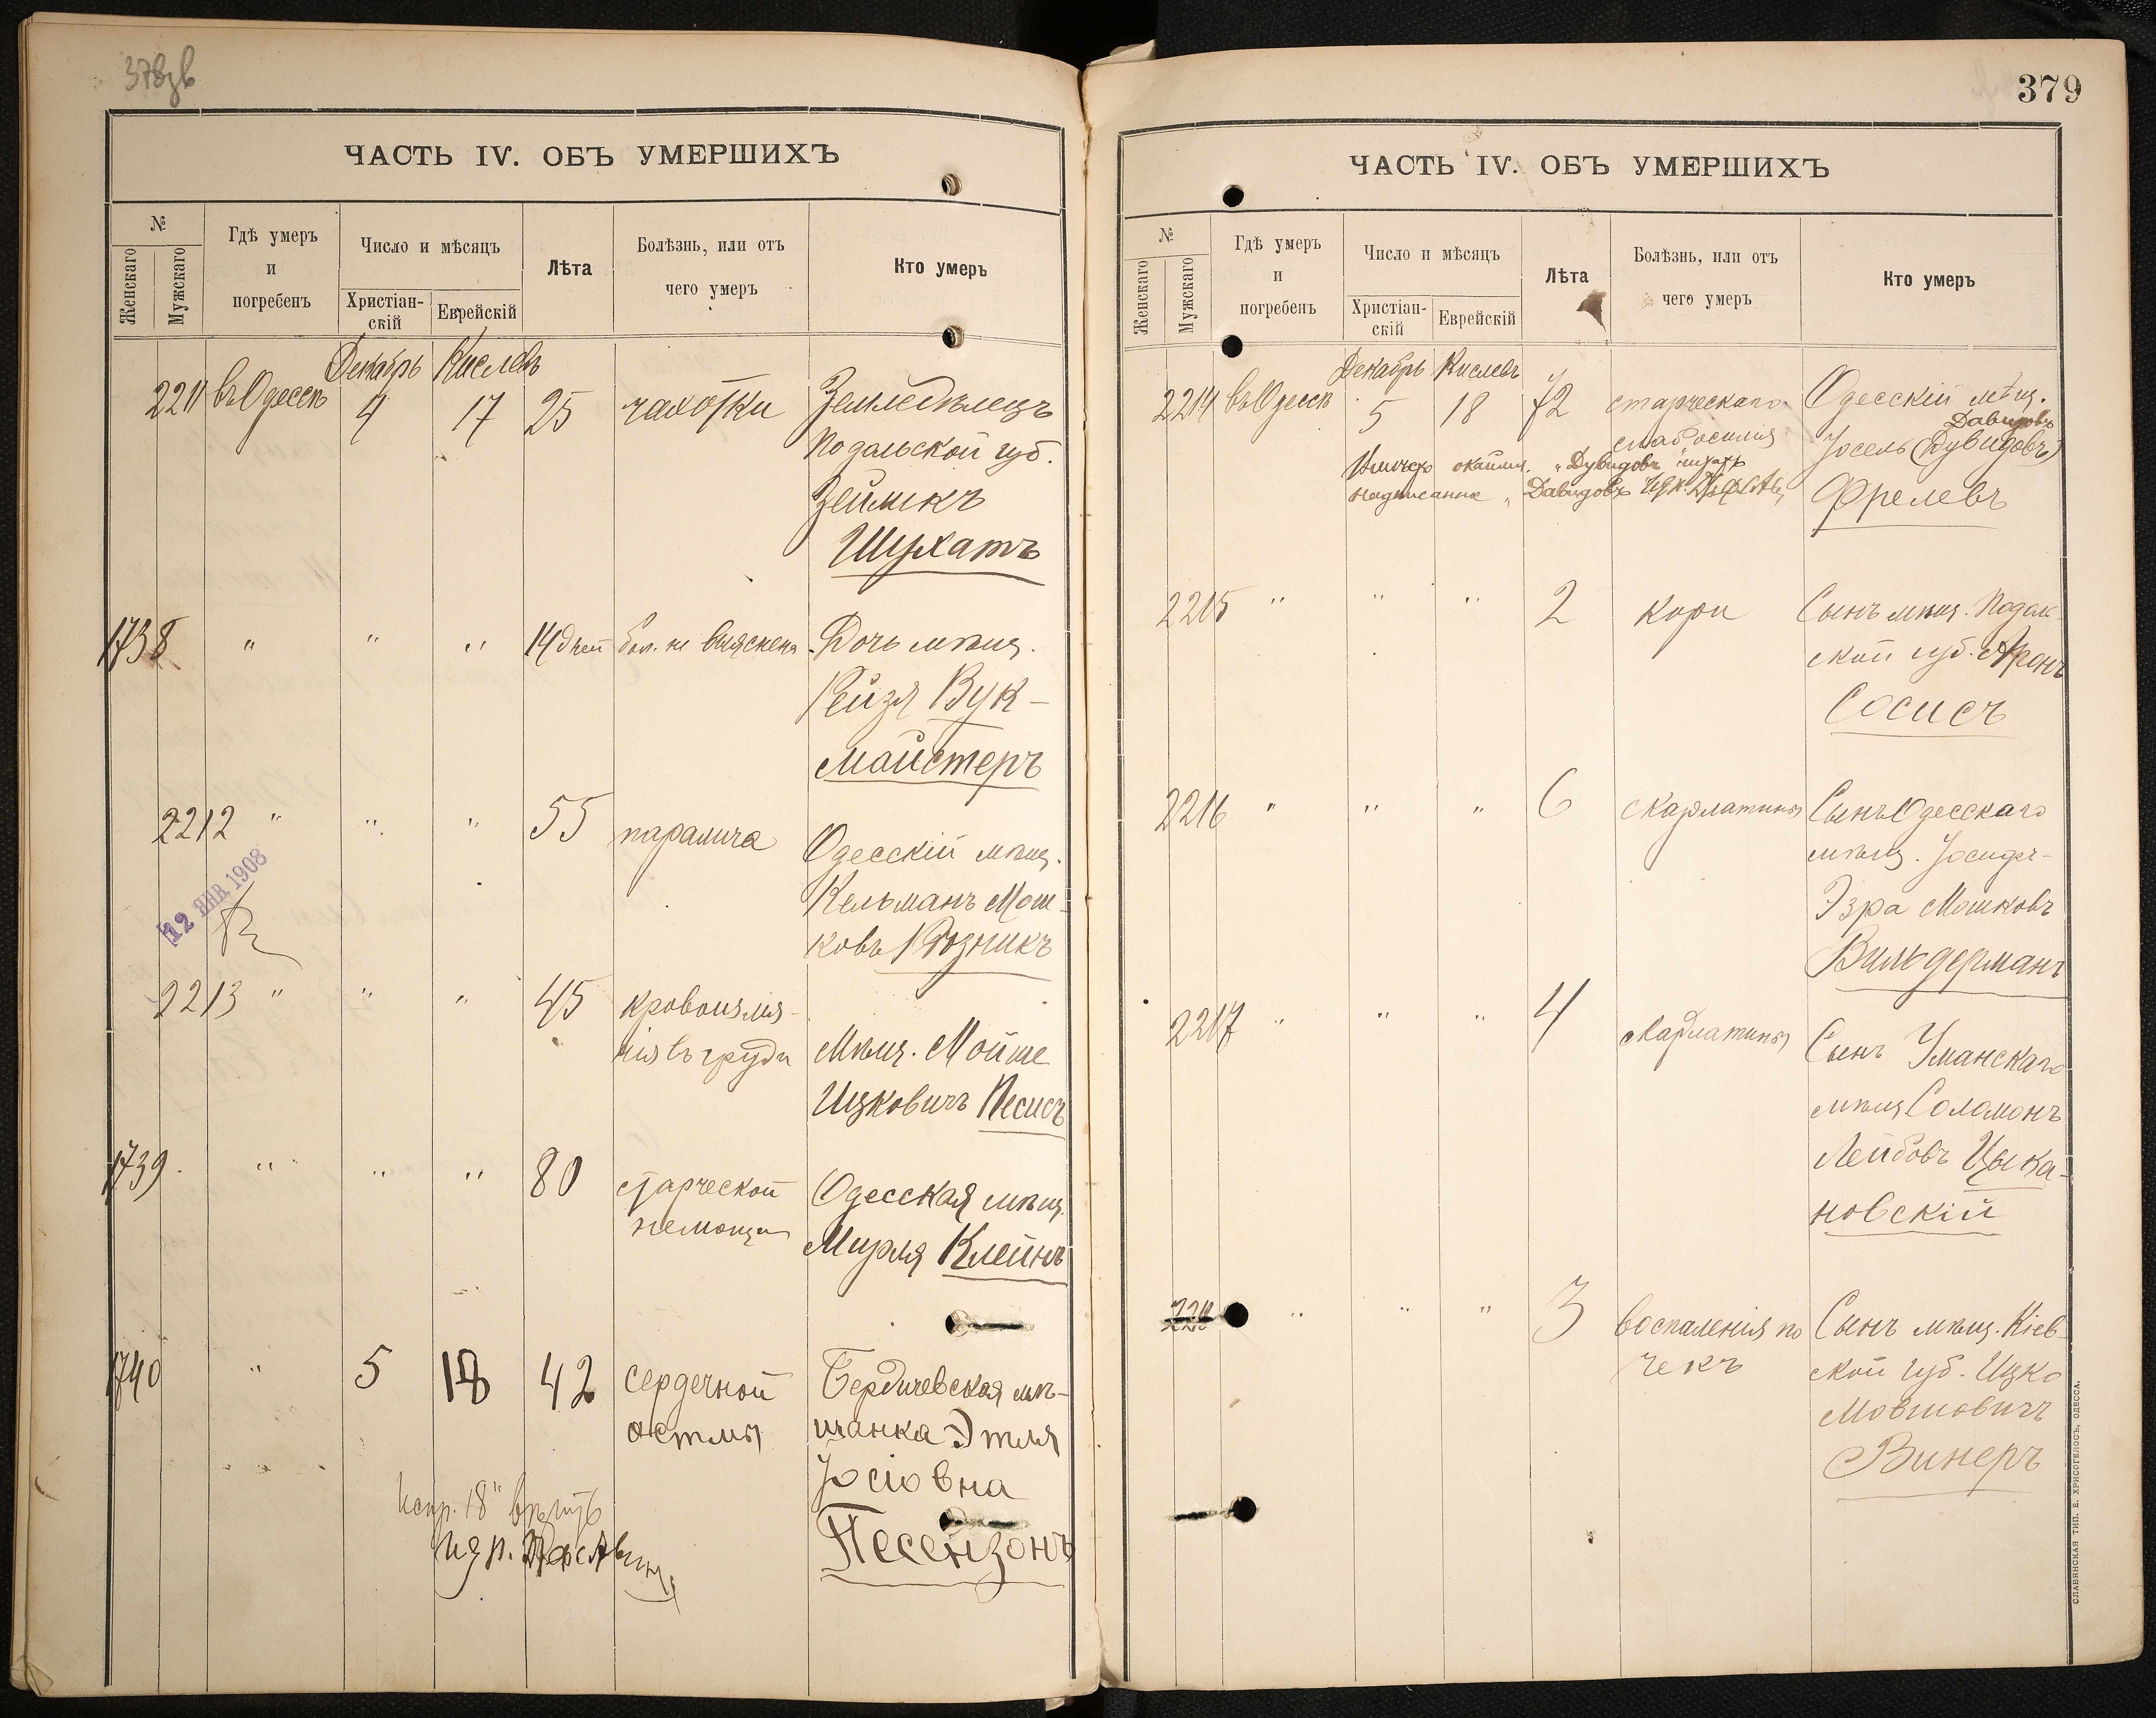 378 об
ЧАСТЬ IV. ОБЪ УМЕРШИХЪ
№
Женскаго
Мужскаго
Гдѣ умеръ
и
погребенъ
Число и мѣсяцъ
Христіан-
скій
Еврейскій
Лѣта
Болѣзнь, или отъ
чего умеръ
Кто умеръ
Декабрь Кислевъ
2211 въ Одессѣ 4 17 25 чахотки Земледѣлецъ
Подольской губ.
Зейликъ
Шухатъ
1738 " " " 14 дней бол. не выяснена Дочь мѣщ.
Рейзя Вук-
майстеръ
2212 " " " 55 паралича Одесскій мѣщ.
Кельманъ Мош-
ковъ Розникъ
12 ЯНВ. 1908
2213 " " " 45 кровоизлія-
нія въ груди Мѣщ. Мойше
Ицковичъ Песисъ
1739 " " " 80 старческой Одесская мѣщ.
немощи Мирля Клейнъ
1740 " 5 18 42 сердечной Бердичевская мѣ-
астмы щанка Этля
Іосіовна
Песензонъ
испр. 18" вѣрить
379
ЧАСТЬ IV. ОБЪ УМЕРШИХЪ
№
Женскаго
Мужскаго
Гдѣ умеръ
и
погребенъ
Число и мѣсяцъ
Христіан-
скій
Еврейскій
Лѣта
Болѣзнь, или отъ
чего умеръ
Кто умеръ
Декабрь Кислевъ
2214 въ Одессѣ 5 18 72 старческаго Одесскій мѣщ.
слабосилія Давидовъ
Іосель (Дувидовъ)
"Дувидовъ"
надписанное "Давидовъ
Фрелевъ
2215 " " " 2 кори Сынъ мѣщ. Подоль-
ской губ. Аронъ
Сосисъ
2216 " " " 6 скарлатины Сынъ Одесскаго
мѣщ. Іосифъ-
Эзра Мошковъ
Вильдерманъ
2217 " " " 4 скарлатины Сынъ Уманскаго
мѣщ. Соломонъ
Лейбовъ Цыка-
новскій
2218 " " " 3 воспаленія по Сынъ мѣщ. Кіев-
чекъ ской губ. Ицко
Мовшовичъ
Винеръ
СЛАВЯНСКАЯ ТИП. Е. ХРИСОГЕЛОСЪ, ОДЕССА.